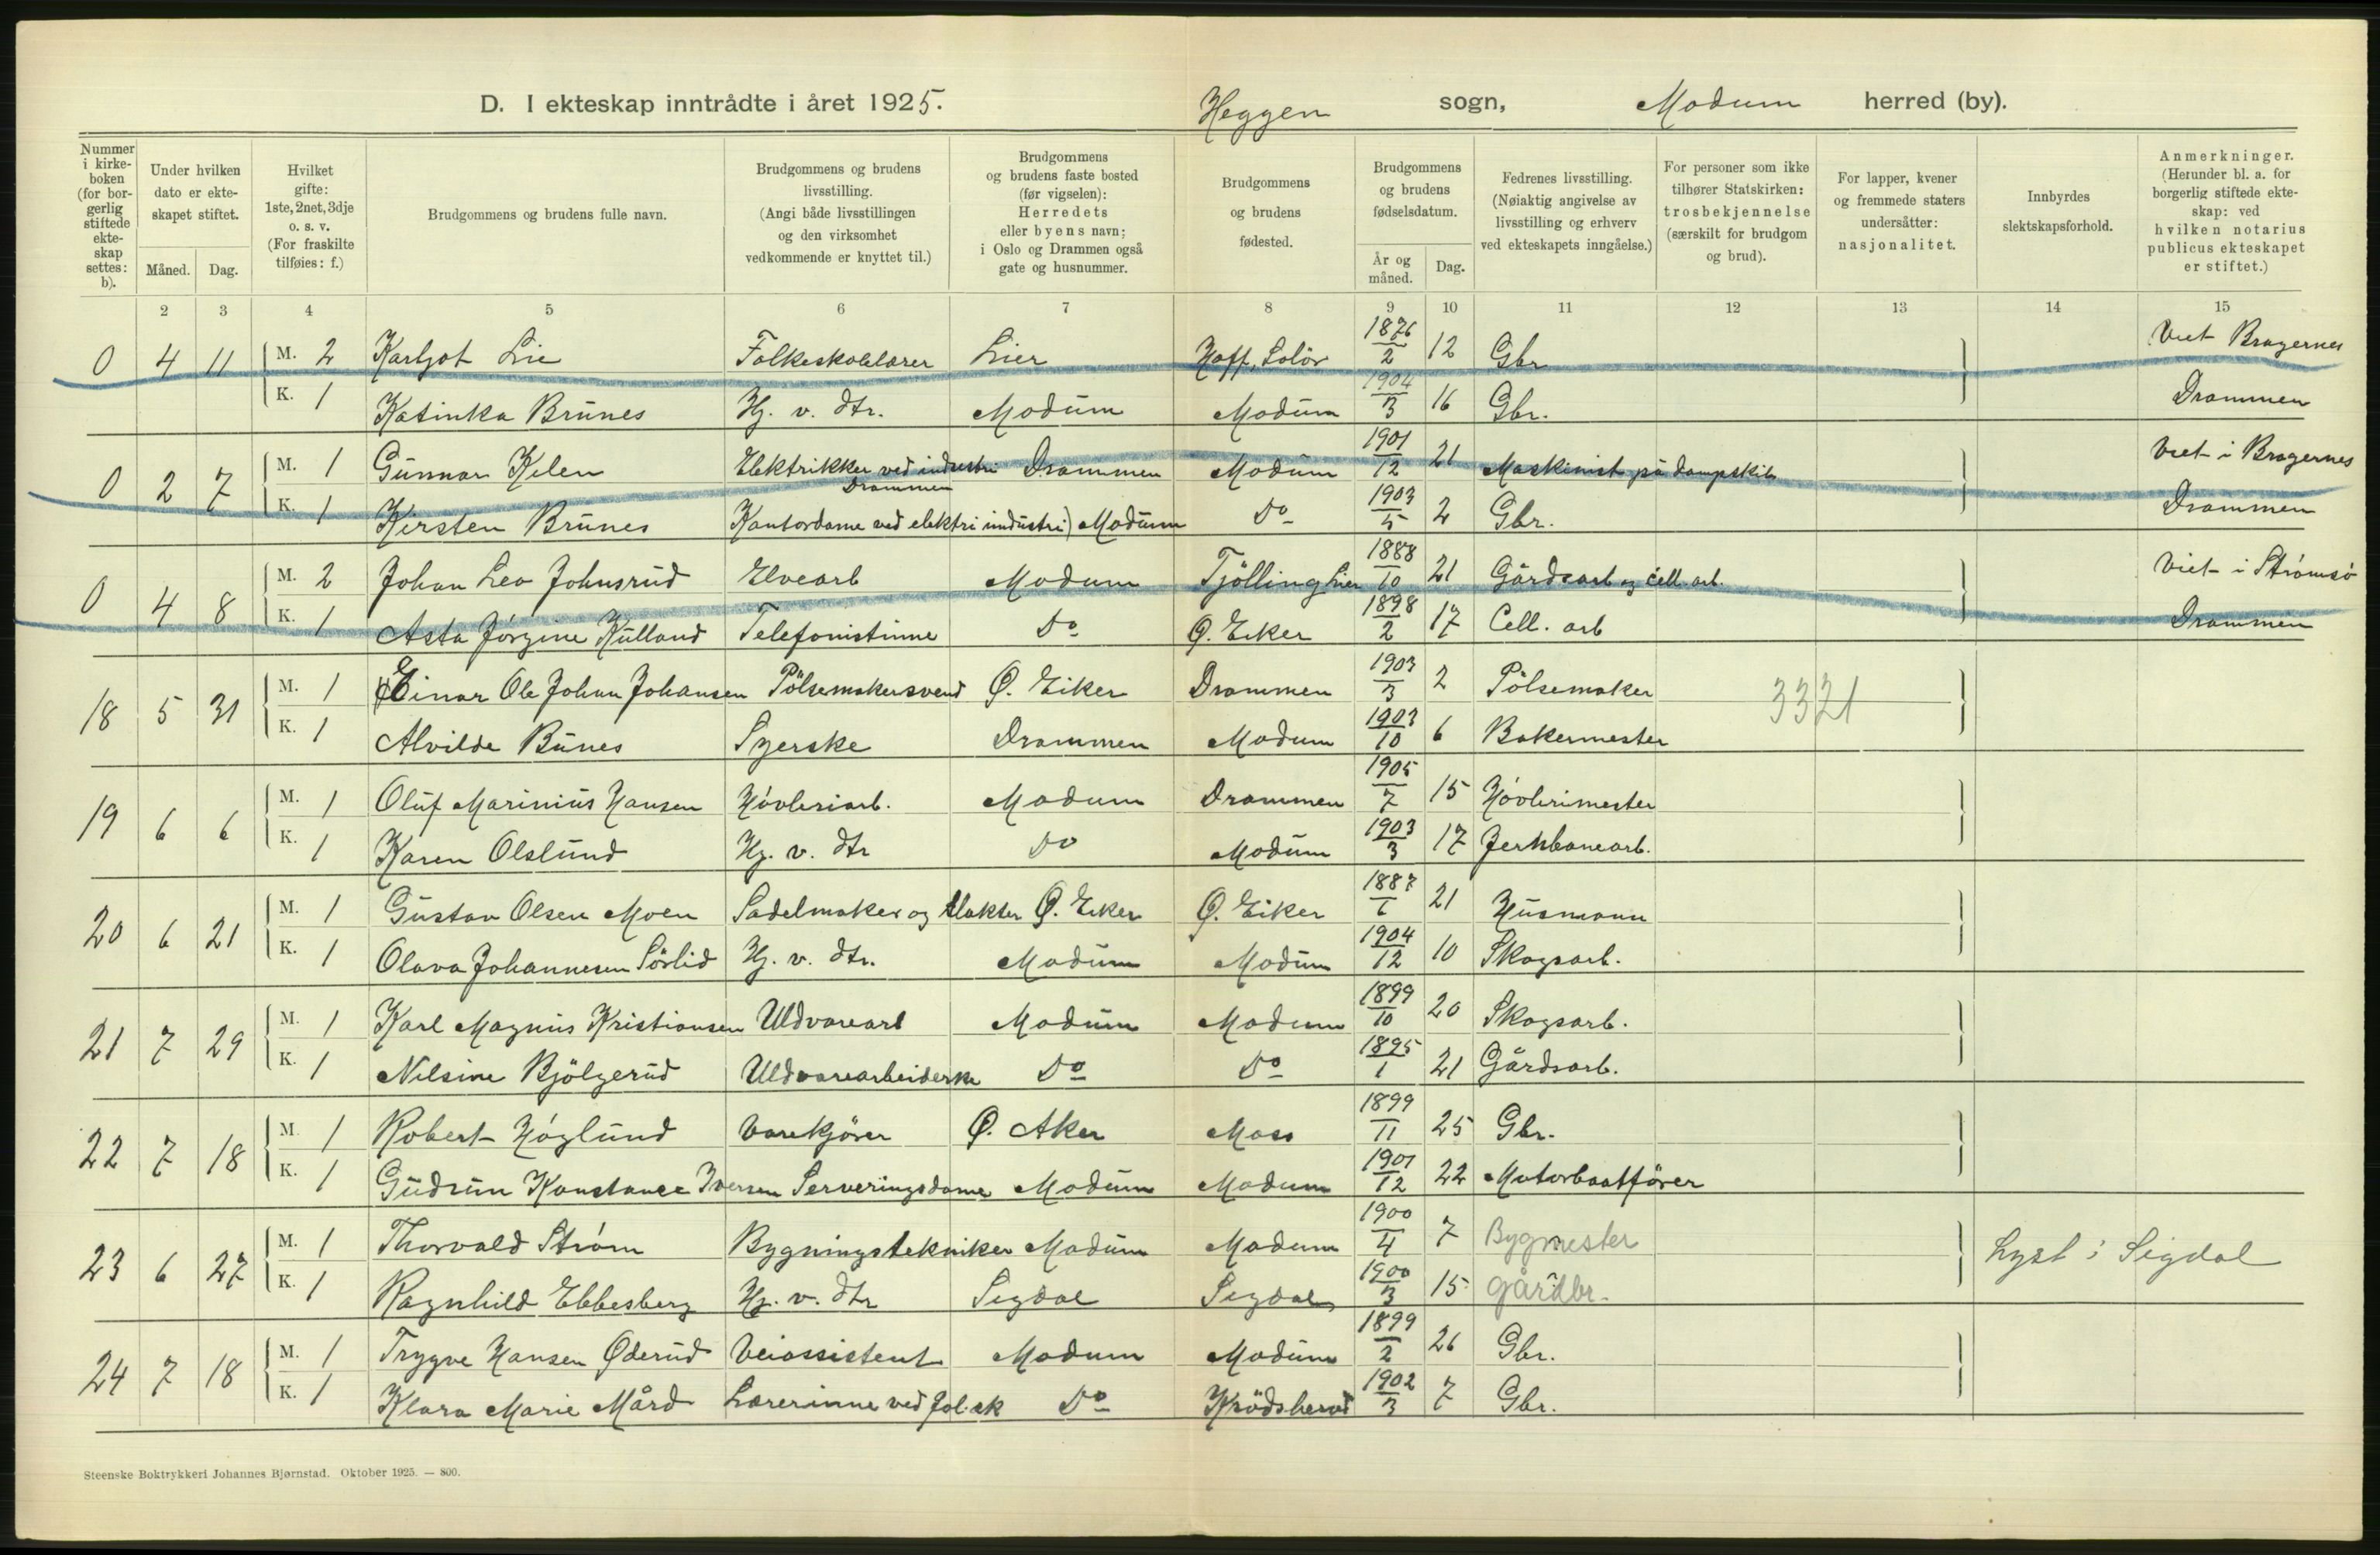 D. I ekteskap inntrådte i året 1925. Heggen sogn, Modum herred (by).
Nummer i kirkeboken (for borgerlig stiftede ekteskap settes: b).
Under hvilken dato er ekteskapet stiftet.
Måned. Dag.
Hvilket gifte: 1ste, 2net, 3dje o. s. v. (For fraskilte tilføies: f.)
Brudgommens og brudens fulle navn.
Brudgommens og brudens livsstilling. (Angi både livsstillingen og den virksomhet vedkommende er knyttet til.)
Brudgommens og brudens faste bosted (før vigselen): Herredets eller byens navn; i Oslo og Drammen også gate og husnummer.
Brudgommens og brudens fødested.
Brudgommens og brudens fødselsdatum.
År og måned. Dag.
Fedrenes livsstilling. (Nøiaktig angivelse av livsstilling og erhverv ved ekteskapets inngåelse.)
For personer som ikke tilhører Statskirken: trosbekjennelse (særskilt for brudgom og brud).
For lapper, kvener og fremmede staters undersåtter: nasjonalitet.
Innbyrdes slektskapsforhold.
Anmerkninger. (Herunder bl. a. for borgerlig stiftede ekteskap: ved hvilken notarius publicus ekteskapet er stiftet.)
2 3 4 5 6 7 8 9 10 11 12 13 14 15
0 4 11 M. 2 Karljot Lie Folkeskolelærer Lier Hoff, Solör 1876/2 12 Gbr Viet Bragernes
K. 1 Katinka Brunes Hj. v. dtr. Modum Modum 1904/3 16 Gbr. Drammen
0 2 7 M. 1 Gunnar Kilen Elektrikker ved industri Drammen Drammen Modum 1901/12 21 Maskinist på dampskib Viet i Bragernes
K. 1 Kirsten Brunes Kontordame ved elektri industri) Modum Do 1903/5 2 Gbr. Drammen
0 4 8 M. 2 Johan Leo Johnsrud Elvearb Modum Tjölling Lier 1888/10 21 Gårdsarb og cell. arb. Viet i Strømsö
K. 1 Asta Jörgine Kulland Telefonistinne Do Ø. Eiker 1898/2 17 Cell. arb Drammen
18 5 31 M. 1 Einar Ole Johan Johansen Pölsemakersvend Ø. Eiker Drammen 1903/3 2 Pölsemaker 3321
K. 1 Alvilde Bunes Syerske Drammen Modum 1903/10 6 Bakermester
19 6 6 M. 1 Oluf Marinius Hansen Hövleriarb. Modum Drammen 1905/7 15 Hövlerimester
K. 1 Karen Olslund Hj. v. dtr Do Modum 1903/3 17 Jernbanearb.
20 6 21 M. 1 Gustav Olsen Moen Sadelmaker og slakter Ø. Eiker Ø. Eiker 1887/6 21 Husmann
K. 1 Olava Johannesen Sörlid Hj. v. dtr. Modum Modum 1904/12 10 Skogsarb.
21 7 29 M. 1 Karl Magnus Kristiansen Uldvarearb Modum Modum 1899/10 20 Skogsarb.
K. 1 Nilsine Bjölgerud Uldvarearbeiderske Do Do 1895/1 21 Gårdsarb.
22 7 18 M. 1 Robert Höglund Varekjörer Ø. Aker Moss 1899/11 25 Gbr.
K. 1 Gudrun Konstance Iversen Serveringsdame Modum Modum 1901/12 22 Motorbaatförer
23 6 27 M. 1 Thorvald Ström Bygningstekniker Modum Modum 1900/4 7 Bygmester Lyst i Sigdal
K. 1 Ragnhild Ebbesberg Hj. v. dtr Sigdal Sigdal 1900/3 15 gårdbr.
24 7 18 M. 1 Trygve Hansen Øderud Veiassistent Modum Modum 1899/2 26 Gbr.
K. 1 Klara Marie Mård Lærerinne ved fol.sk Do Krödsherred 1902/3 7 Gbr.
Steenske Boktrykkeri Johannes Bjørnstad. Oktober 1925. — 800.